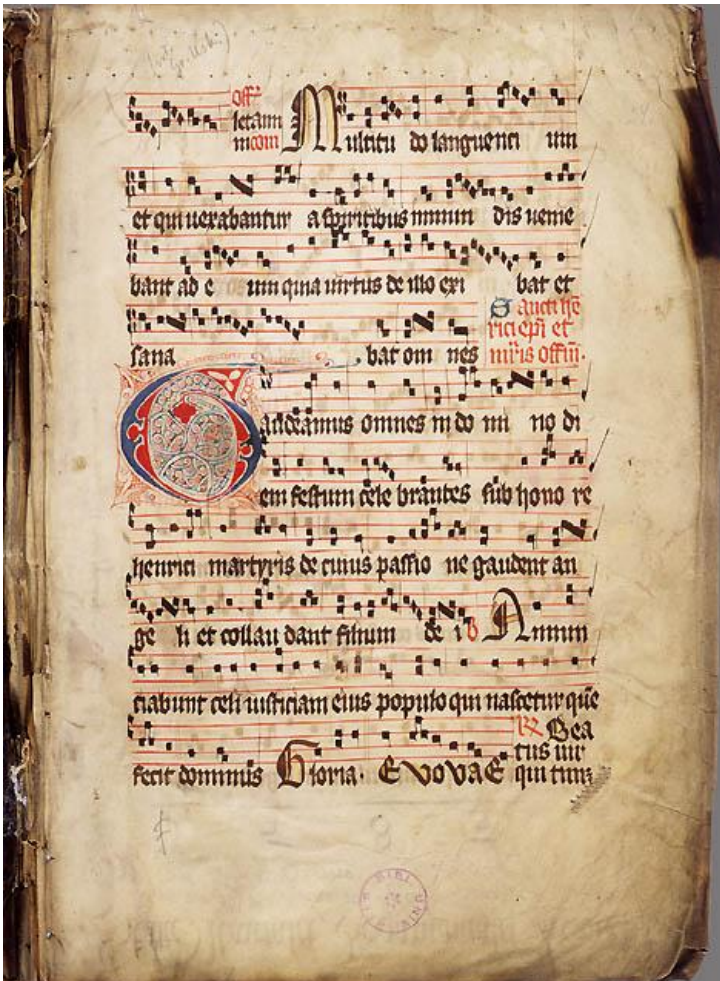 Off
letamini
in com Multitudo languenci um
et qui uexabantur a spiritibus inmun dis uenie
bant ad e um quia uirtus de illo exi bat et
sana bat om nes Sancti he
rici epi et
mris offm.
Gaudeamus omnes in do mi no di
em festum cele brantes sub hono re
henrici martyris de cuius passio ne gaudent an
ge li et collau dant filium de i Annun
ciabunt celi iusticiam eius populo qui nascetur que
fecit dominus Gloria. EVOVAE Bea
tus uir
qui tim